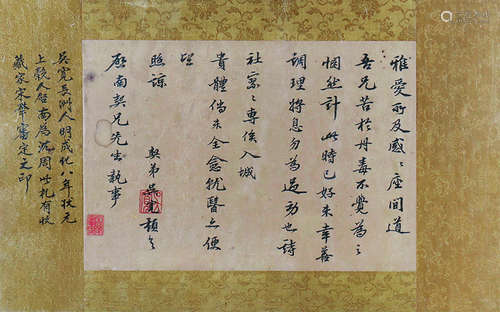 雅愛所及感〻座間道
吾兄苦於丹毒不覺為之
惘然計此時已好未幸善
調理將息勿為過勞也詩
社寄〻專俟入城
貴體倘未全愈就醫亦便
照諒
契弟吳寬頓首
啟南契兄先生執事
吳寬長洲人明成化八年狀元
上款人啟南為沈周此札有收
藏家宋犖審定之印